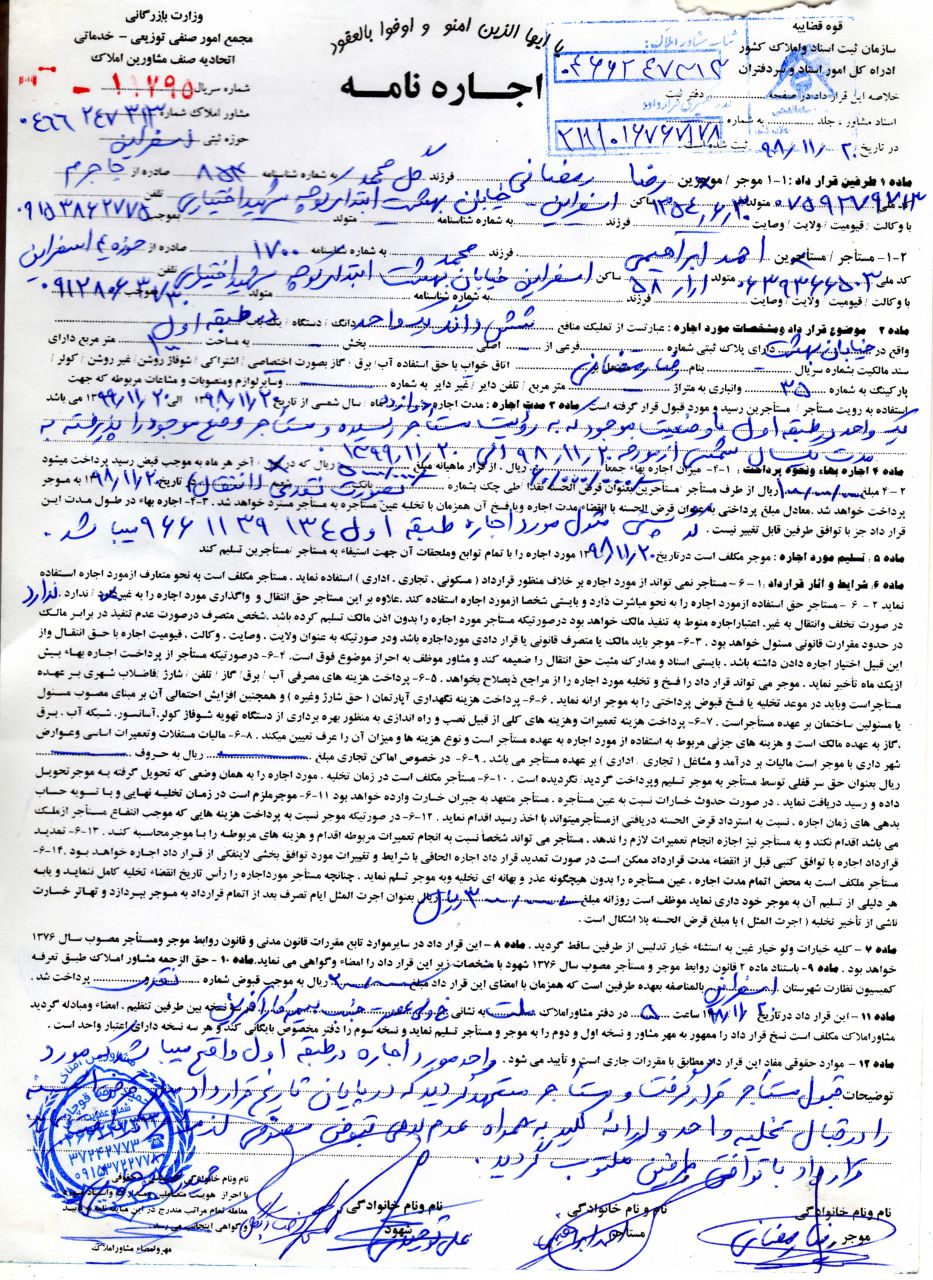 یا ایها الذین امنو و اوفوا بالعقود
اجاره نامه
قوه قضاییه
سازمان ثبت اسناد واملاک کشور
اداره کل امور اسناد و سردفتران
خلاصه این قرارداد در صفحه دفتر ثبت
اسناد مشاور . جلد به شماره
در تاریخ ۹۸/۱۱/۲۰ ثبت شده است
شناسه مشاور املاک:
۰۴۶۶۲۴۷۳۱۳
کد رهگیری قرارداد:
وزارت بازرگانی
مجمع امور صنفی توزیعی - خدماتی
اتحادیه صنف مشاورین املاک
شماره سریال ۱۰۲۹۵
مشاور املاک شماره ۰۴۶۶۲۴۷۳۱۳
حوزه ثبتی اسفراین
ماده ۱ طرفین قرارداد : ۱-۱ موجر / موجرین رضا رمضانی فرزند گل محمد به شماره شناسنامه ۸۵۴ صادره از جاجرم
کد ملی متولد ساکن اسفراین - خیابان بهشت ابتدای کوچه شهید اختیاری تلفن ۰۹۱۵۳۸۶۲۷۷۵
با وکالت / قیمومیت / ولایت / وصایت فرزند به شماره شناسنامه متولد بموجب
۱-۲- مستأجر / مستأجرین احمد ابراهیمی فرزند محمد به شماره شناسنامه ۱۷۰۰ صادره از حوزه ۴ اسفراین
کد ملی متولد ساکن اسفراین خیابان بهشت ابتدای کوچه شهید اختیاری تلفن
با وکالت / قیمومیت / ولایت / وصایت فرزند به شماره شناسنامه متولد بموجب
ماده ۲ موضوع قرارداد ومشخصات مورد اجاره : عبارتست از تملیک منافع شش دانگ یک واحد دانگ / دستگاه / یک باب در طبقه اول
واقع در خیابان بهشت دارای پلاک ثبتی شماره فرعی از اصلی بخش به مساحت متر مربع دارای
سند مالکیت بشماره سریال بنام رضا رمضانی اتاق خواب با حق استفاده آب/ برق / گاز بصورت اختصاصی / اشتراکی / شوفاژ روشن/ غیر روشن / کولر /
پارکینگ به شماره ۳۵ وانباری به متراژ متر مربع / تلفن دایر / غیر دایر به شماره وسایر لوازم ومنصوبات و مشاعات مربوطه که جهت
استفاده به رویت مستأجر / مستأجرین رسید و مورد قبول قرار گرفته است. ماده ۳ مدت اجاره : مدت اجاره دوازده ماه / سال شمسی از تاریخ ۱۳۹۸/۱۱/۲۰ الی ۱۳۹۹/۱۱/۲۰ می باشد
یک واحد در طبقه اول با وضعیت موجود که به رؤیت مستأجر رسیده و مستأجر وضع موجود را پذیرفته به
مدت یکسال شمسی از مورخه ۹۸/۱۱/۲۰ الی ۱۳۹۹/۱۱/۲۰
ماده ۴ اجاره بهاء ونحوه پرداخت : ۱-۴- میزان اجاره بهاء جمعاً ریال ، از قرار ماهیانه مبلغ ریال که در آخر هر ماه به موجب قبض رسید پرداخت میشود
۲-۴ مبلغ ریال از طرف مستأجر / مستأجرین بعنوان قرض الحسنه نقداً / طی چک بشماره بانک شعبه در تاریخ به موجر
پرداخت خواهد شد. معادل مبلغ پرداختی به عنوان قرض الحسنه با انقضاء مدت اجاره ویا فسخ آن همزمان با تخلیه عین مستأجره به مستأجر مسترد خواهد شد . ۳-۴- اجاره بهاء در طول مدت این
قرارداد جز با توافق طرفین قابل تغییر نیست . کد پستی منزل مورد اجاره طبقه اول ۹۶۶۱۱۳۹۱۳۴ میباشد .
ماده ۵ . تسلیم مورد اجاره : موجر مکلف است در تاریخ ۱۳۹۸/۱۱/۲۰ مورد اجاره را با تمام توابع وملحقات آن جهت استیفاء به مستأجر /مستأجرین تسلیم کند
ماده ۶. شرایط و آثار قرارداد : ۱-۶- مستأجر نمی تواند از مورد اجاره بر خلاف منظور قرارداد ( مسکونی . تجاری . اداری ) استفاده نماید . مستأجر مکلف است به نحو متعارف از مورد اجاره استفاده
نماید ۲-۶- مستأجر حق استفاده از مورد اجاره را به نحو مباشرت دارد و بایستی شخصا از مورد اجاره استفاده کند . علاوه بر این مستأجر حق انتقال و واگذاری مورد اجاره را به غیر دارد / ندارد . ندارد
در صورت تخلف وانتقال به غیر، اعتبار اجاره منوط به تنفیذ مالک خواهد بود درصورتیکه مستأجر مورد اجاره را بدون اذن مالک تسلیم کرده باشد .شخص متصرف درصورت عدم تنفیذ در برابر مالک
در حدود مقررات قانونی مسئول خواهد بود . ۳-۶- موجر باید مالک یا متصرف قانونی یا قرار دادی مورداجاره باشد ودر صورتیکه به عنوان ولایت . وصایت . وکالت . قیمومیت اجاره با حق انتقال واز
این قبیل اختیار اجاره دادن داشته باشد . بایستی اسناد و مدارک مثبت حق انتقال را ضمیمه کند و مشاور موظف به احراز موضوع فوق است. ۴-۶- درصورتیکه مستأجر از پرداخت اجاره بهاء بیش
ازیک ماه تأخیر نماید . موجر می تواند قرارداد را فسخ و تخلیه مورد اجاره را از مراجع ذیصلاح بخواهد . ۵-۶- پرداخت هزینه های مصرفی آب / برق/ گاز / تلفن / شارژ /فاضلاب شهری بر عهده
مستأجر است وباید در موعد تخلیه یا فسخ قبوض پرداختی را به موجر ارائه نماید . ۶-۶- پرداخت هزینه نگهداری آپارتمان ( حق شارژ وغیره ) و همچنین افزایش احتمالی آن بر مبنای مصوب مسئول
یا مسئولین ساختمان بر عهده مستأجراست . ۷-۶- پرداخت هزینه تعمیرات وهزینه های کلی از قبیل نصب و راه اندازی به منظور بهره برداری از دستگاه تهویه شوفاژ کولر.آسانسور. شبکه آب . برق
.گاز به عهده مالک است و هزینه های جزئی مربوط به استفاده از مورد اجاره به عهده مستأجر است و نوع هزینه ها و میزان آن را عرف تعیین میکند . ۸-۶- مالیات مستغلات وتعمیرات اساسی وعوارض
شهر داری با موجر است مالیات بر درآمد و مشاغل ( تجاری . اداری ) بر عهده مستأجر می باشد . ۹-۶- در خصوص اماکن تجاری مبلغ ریال به حروف
ریال بعنوان حق سر قفلی توسط مستأجر به موجر تسلیم وپرداخت گردید/ نگردیده است . ۱۰-۶- مستأجر مکلف است در زمان تخلیه . مورد اجاره را به همان وضعی که تحویل گرفته به موجر تحویل
داده و رسید دریافت نماید . در صورت حدوث خسارات نسبت به عین مستأجره . مستأجر متعهد به جبران خسارت وارده خواهد بود ۱۱-۶- موجر ملزم است در زمان تخلیه نهایی و با تسویه حساب
بدهی های زمان اجاره . نسبت به استرداد قرض الحسنه دریافتی ازمستأجر میتواند با اخذ رسید اقدام نماید . ۱۲-۶- در صورتیکه موجر نسبت به پرداخت هزینه هایی که موجب انتفاع مستأجر ازملک
می باشد اقدام نکند و به مستأجر نیز اجازه انجام تعمیرات لازم را ندهد . مستأجر می تواند شخصاً نسبت به انجام تعمیرات مربوطه اقدام و هزینه های مربوطه را با موجرمحاسبه کند . ۱۳-۶- تمدید
قرارداد اجاره با توافق کتبی قبل از انقضاء مدت قرارداد ممکن است در صورت تمدید قرار داد اجاره الحاقی با شرایط و تغییرات مورد توافق بخشی لاینفکی از قرار داد اجاره خواهد بود .۱۴-۶-
مستأجر ملکف است به محض اتمام مدت اجاره . عین مستأجره را بدون هیچگونه عذر و بهانه ای تخلیه وبه موجر تسلم نماید . چنانچه مستأجر مورداجاره را رأس تاریخ انقضاء تخلیه کامل ننماید و یابه
هر دلیلی از تسلیم آن به موجر خود داری نماید موظف است روزانه مبلغ ریال بعنوان اجرت المثل ایام تصرف بعد از اتمام قرارداد به موجر بپردازد و تهاتر خسارت
ناشی از تأخیر تخلیه ( اجرت المثل ) با مبلغ قرض الحسنه بلا اشکال است .
ماده ۷ - کلیه خیارات ولو خیار غبن به استثناء خیار تدلیس از طرفین ساقط گردید . ماده ۸ - این قرار داد در سایر موارد تابع مقررات قانون مدنی و قانون روابط موجر ومستأجر مصوب سال ۱۳۷۶
خواهد بود . ماده ۹- باستناد ماده ۲ قانون روابط موجر و مستأجر مصوب سال ۱۳۷۶ شهود با مشخصات زیر این قرار داد را امضاء وگواهی می نماید. ماده ۱۰- حق الزحمه مشاور املاک طبق تعرفه
کمیسیون نظارت شهرستان اسفراین بالمناصفه بعهده طرفین است که همزمان با امضای این قرارداد مبلغ ریال به موجب قبوض شماره نقدی پرداخت شد .
ماده ۱۱ - این قرار داد در تاریخ ساعت ۵ در دفتر مشاور املاک ملت به نشانی در سه نسخه بین طرفین تنظیم . امضاء ومبادله گردید
مشاور املاک مکلف است نسخ قرار داد را ممهور به مهر مشاور و نسخه اول و دوم را به موجر و مستأجر تسلیم نماید و نسخه سوم را دفتر مخصوص بایگانی کند و هر سه نسخه دارای اعتبار واحد است .
ماده ۱۲ - موارد حقوقی مفاد این قرار داد مطابق با مقررات جاری است و تأیید می شود . واحد مورد اجاره در طبقه اول واقع میباشد که مورد
توضیحات قبول مستأجر قرار گرفت و مستأجر متعهد گردید که در پایان تاریخ قرارداد
را در قبال تخلیه واحد و ارائه کلید به همراه عدم بدهی قبوض مصرفی
قرارداد با توافق طرفین مکتوب گردید .
۳۷۲۴۲۷۷۳
۰۹۱۵۳۷۲۲۷۷۸
نام و نام خانوادگی
موجر
رضا رمضانی
نام و نام خانوادگی
مستاجر
احمد ابراهیمی
نام ونام خانوادگی
شهود
مهر وامضاء مشاور املاک